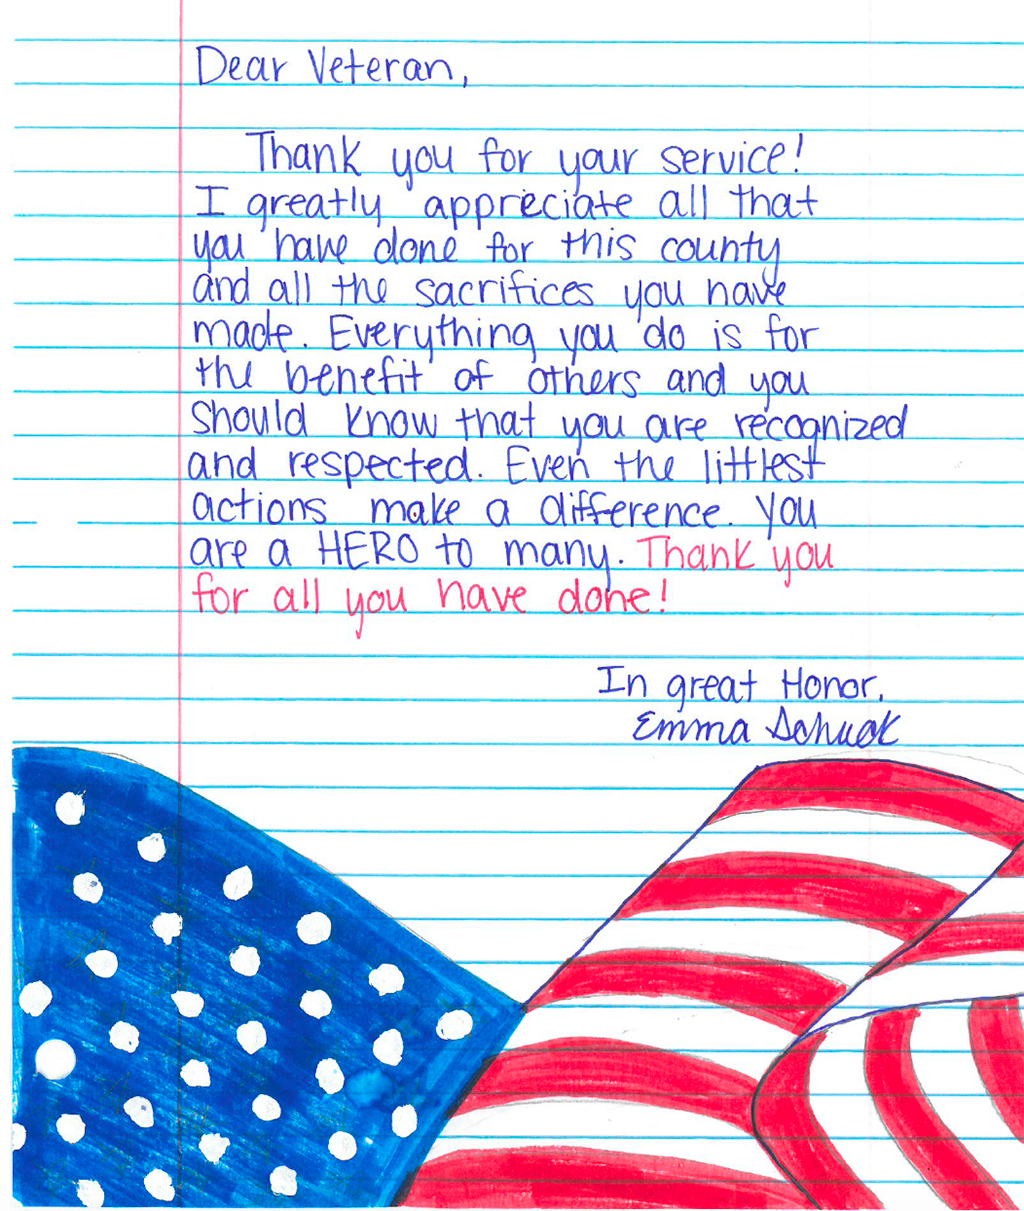 Dear Veteran,
Thank you for your service!
I greatly appreciate all that
you have done for this county
and all the sacrifices you have
made. Everything you do is for
the benefit of others and you
should know that you are recognized
and respected. Even the littlest
actions make a difference. You
are a HERO to many. Thank you
for all you have done!
In great Honor,
Emma Schuck